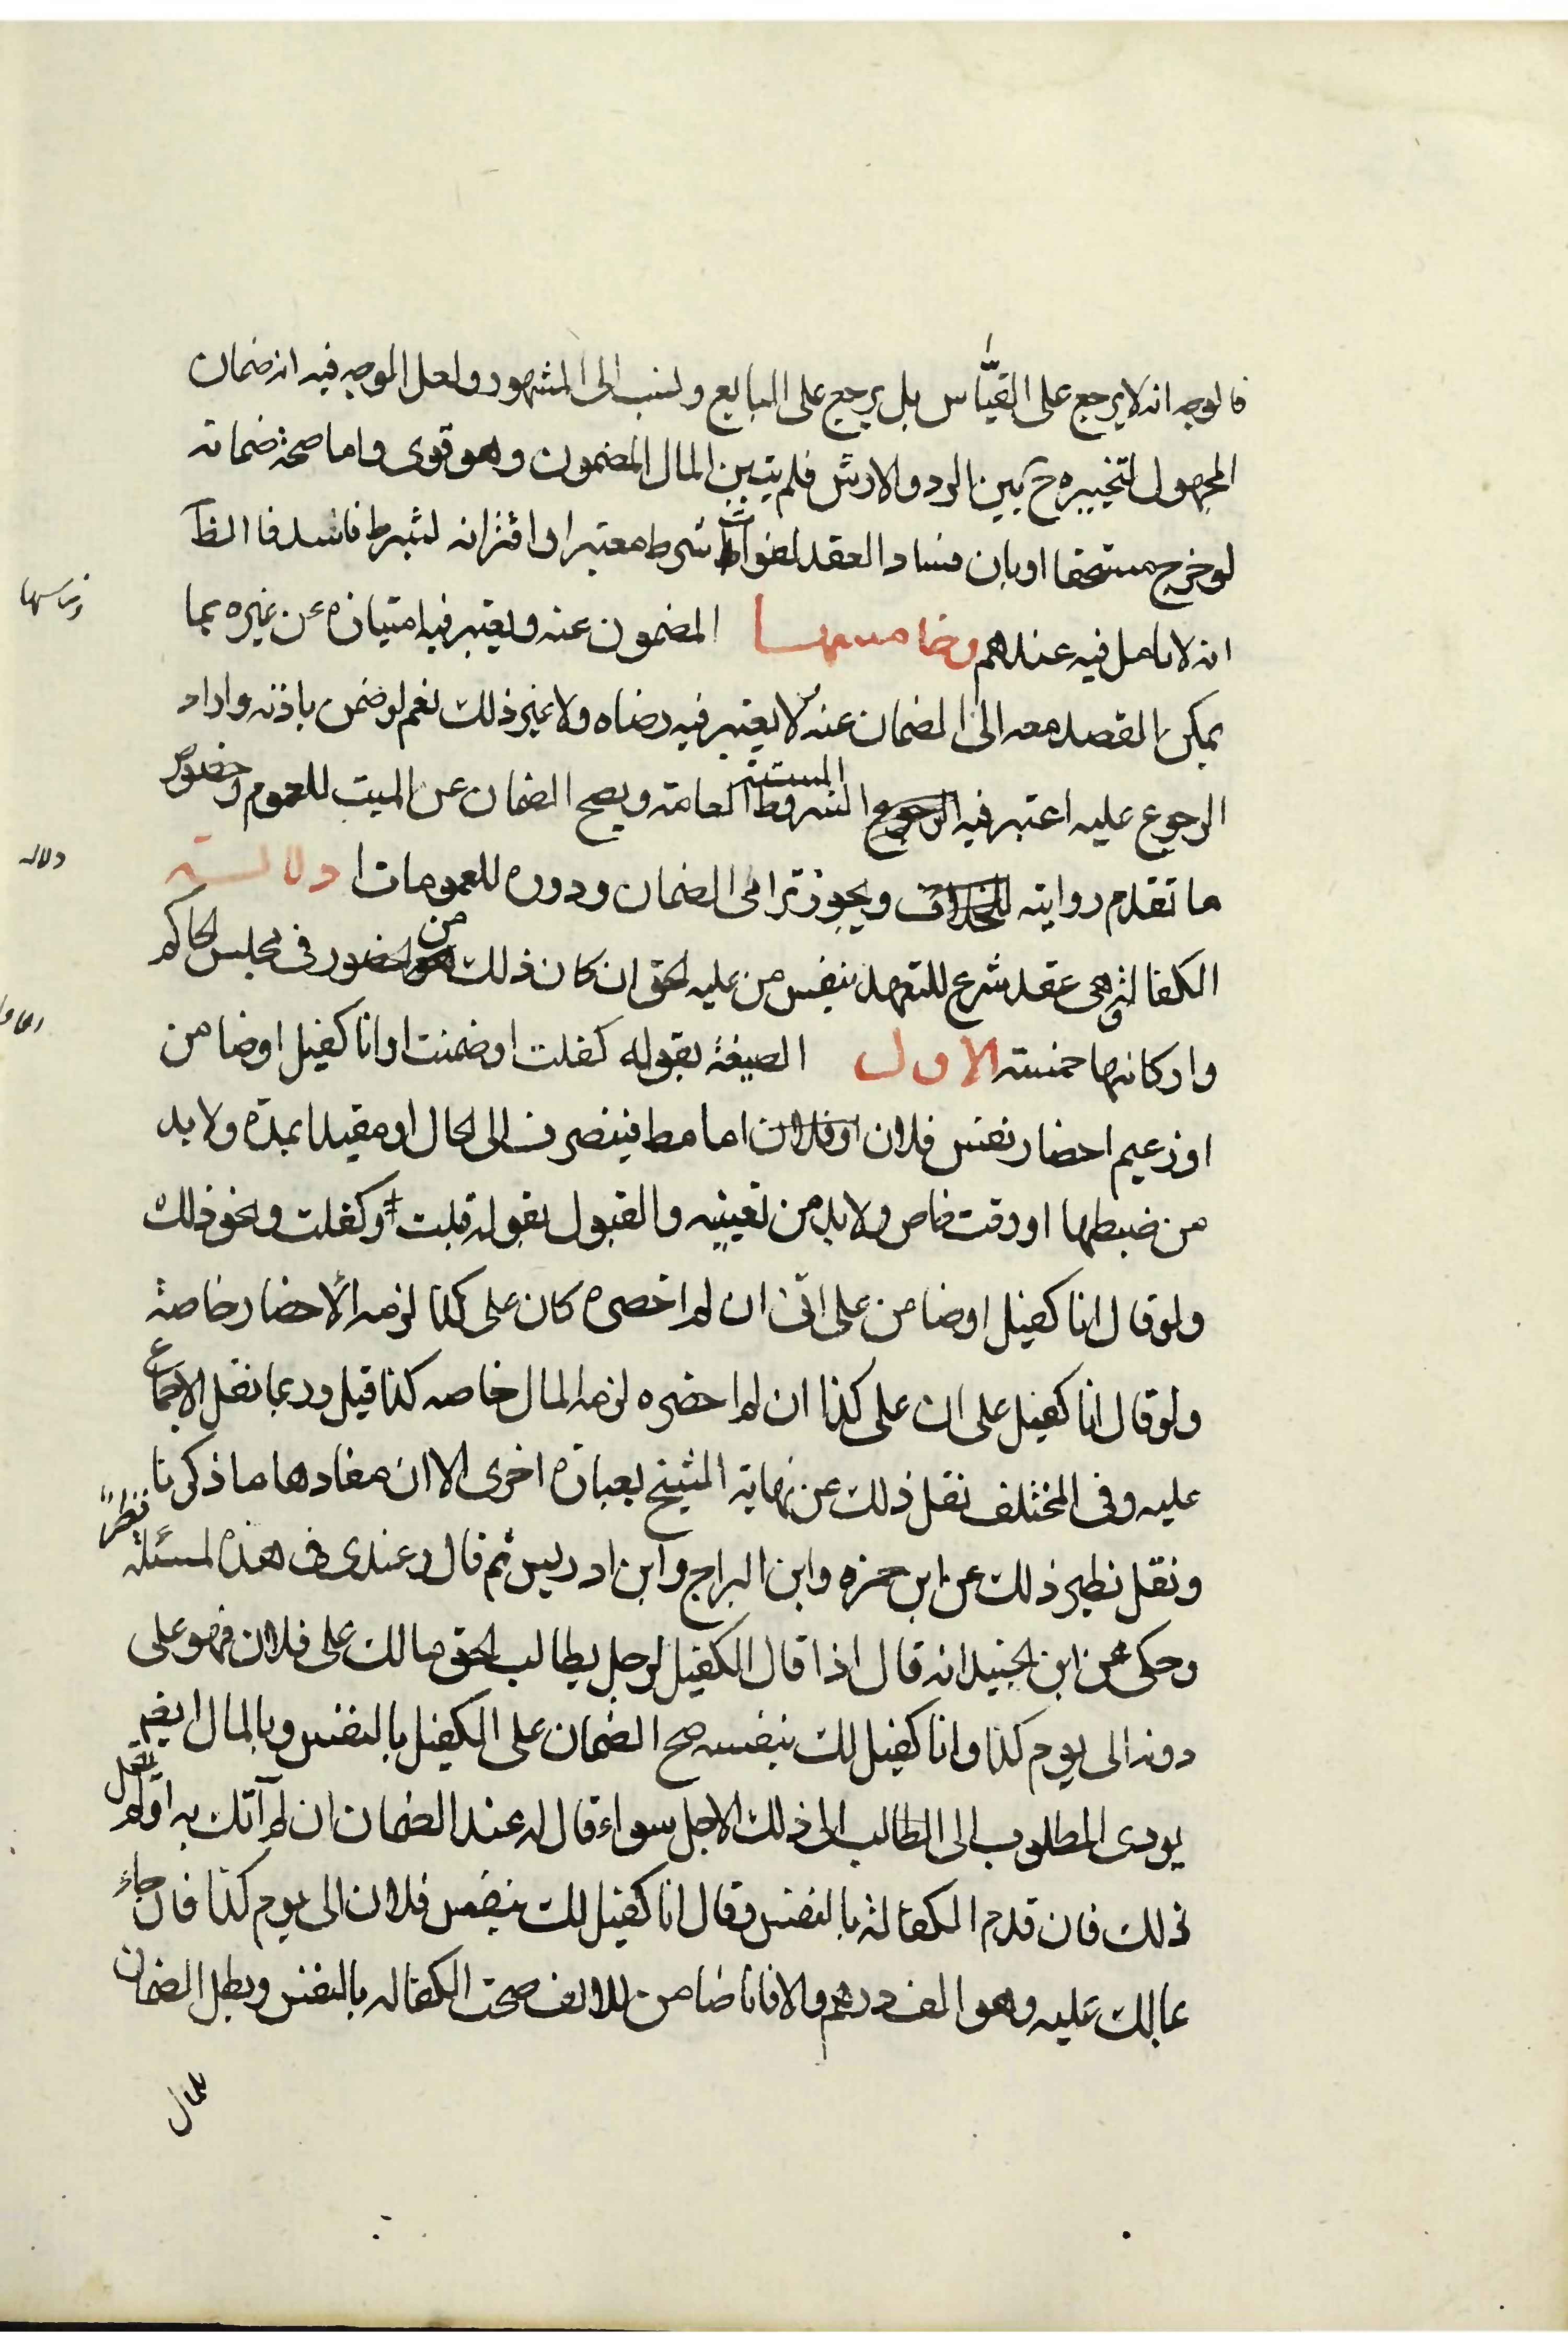 فالوجه انه لا يرجع على القياس بل يرجع على البايع ونسب الى المشهور ولعل الوجه فيه انه ضمان
المجهول لتخييره ح بين الرد والارش فلم يتبين المال المضمون وهو قوى واما صحة ضمانه
لو خرج مستحقا او بان فساد العقد لفوات شرط معتبر او اقترانه لشرط فاسد فا الظ
انه لا تامل فيه عندهم وخامسها المضمون عنه ويعتبر فيه امتيازه عن غيره بما
يمكن القصد معه الى الضمان عنه ولا يعتبر فيه رضاه ولا غير ذلك نعم لو ضمن باذنه واراد
الرجوع عليه اعتبر فيه الشروط العامة ويصح الضمان عن الميت للعموم وخصوص
ما تقدم روايته ويجوز ترامى الضمان ودوره للعمومات دلالة
الكفالة وهى عقد شرع للتعهد بنفس من عليه الحق ان كان ذلك من الحضور فى مجلس الحاكم
واركانها خمسة الاول الصيغة بقوله كفلت او ضمنت او انا كفيل او ضامن
او زعيم احضار نفس فلان اما مط فينصرف الى الحال او مقيدا بمدة ولا بد
من ضبطها او وقت خاص ولا بد من تعيينه والقبول بقوله قبلت وكفلت ونحو ذلك
ولو قال انا كفيل او ضامن على انى ان لم احضره كان على كذا لزمه الاحضار خاصة
ولو قال انا كفيل على ان على كذا ان لم احضره لزمه المال خاصه كذا قيل وربما نقل الاجماع
عليه وفى المختلف نقل ذلك عن نهاية الشيخ بعبارة اخرى الا ان مفادها ما ذكرنا
ونقل نظير ذلك عن ابن حمزه وابن البراج وابن ادريس ثم قال وعندى فى هذه المسئلة نظر
وحكى عن ابن الجنيد انه قال اذا قال الكفيل لرجل يطالب بحق مالك على فلان فهو على
دونه الى يوم كذا وانا كفيل لك بنفسه صح الضمان على الكفيل بالنفس وبالمال ان لم
يودى المطلوب الى الطالب الى ذلك الاجل سواء قال له عند الضمان ان لم آتك به او لم يقل
ذلك فان قدم الكفالة بالنفس وقال انا كفيل لك بنفس فلان الى يوم كذا فان جاء
بمالك عليه وهو الف درهم والا فانا ضامن للالف صحت الكفاله بالنفس وبطل الضمان
بالمال
وخامسها
دلاله